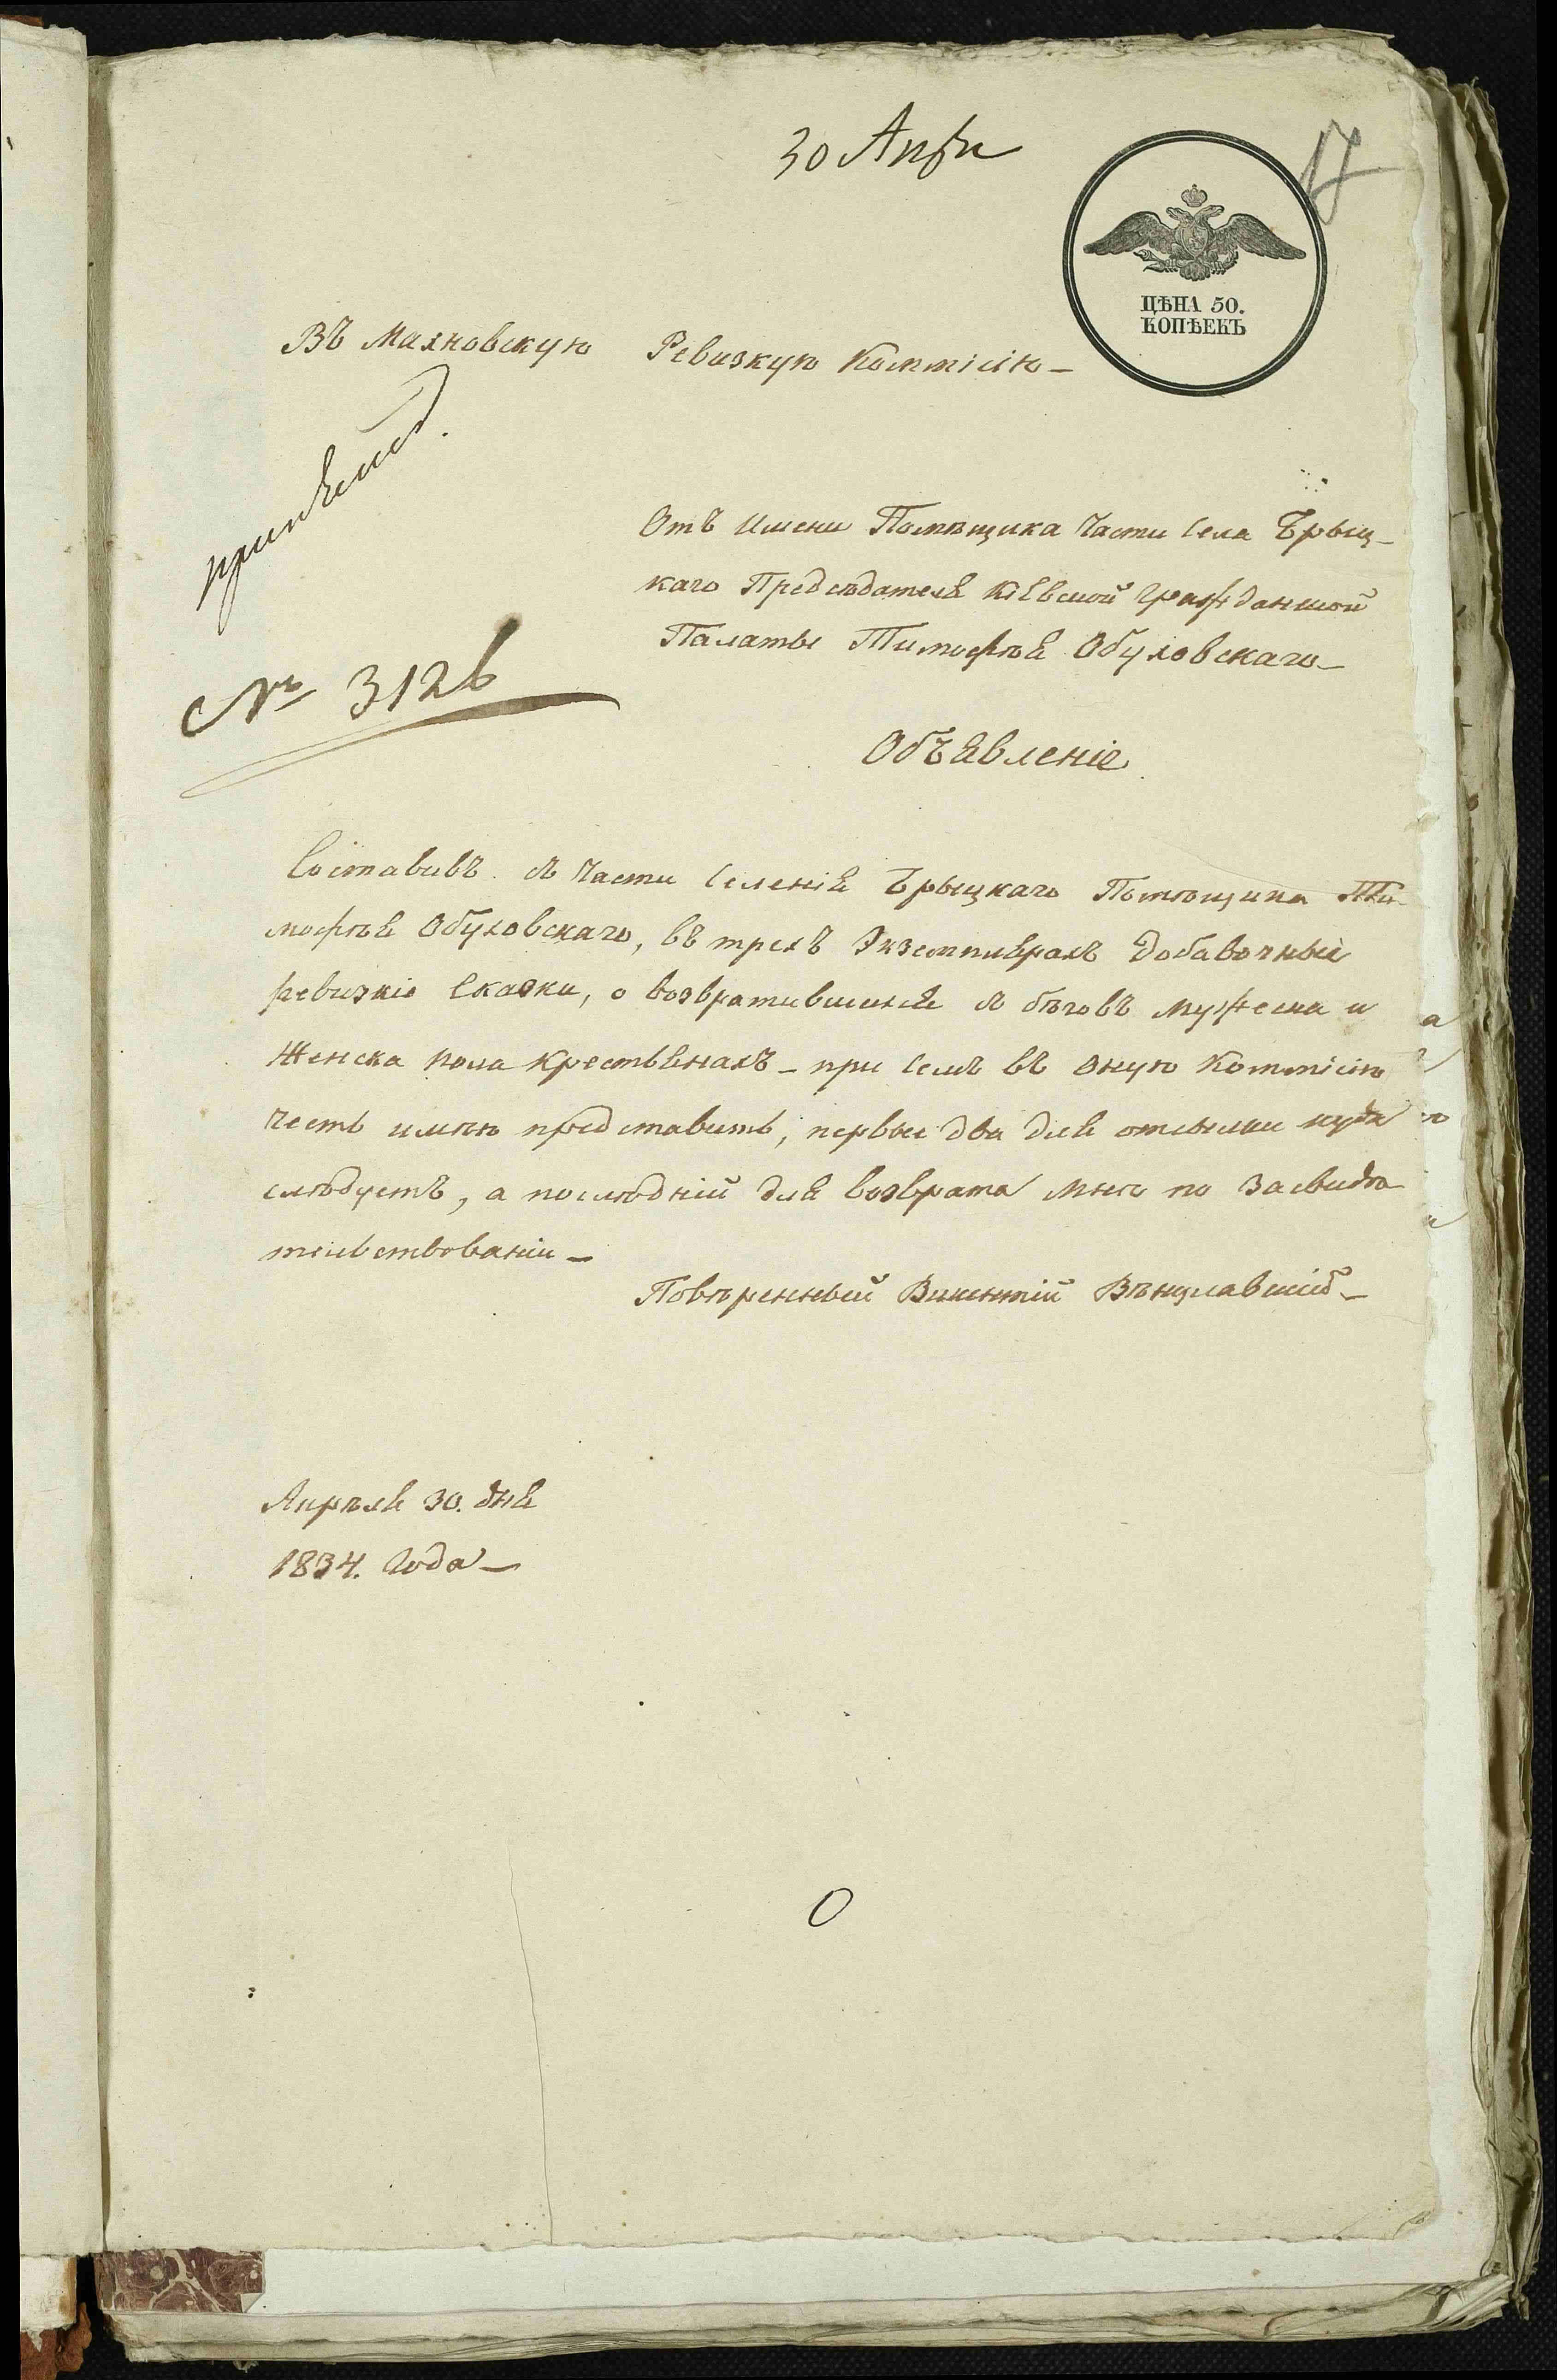 30 Апрѣ
17
ЦѢНА 50.
КОПѢЕКЪ
Въ Махновскую Ревизкую Коммісію —
№ 3126
Отъ имени Помѣщика части села Брыц-
каго Предсѣдателя Кіевской Гражданской
Палаты Тимофѣя Обуховскаго —
Объявленіе
Составивъ съ части селенія Брыцкаго Помѣщика Ти-
мофѣя Обуховскаго, въ трехъ экземплярахъ добавочныя
ревизкіе сказки, о возвратившихся съ бѣговъ мужеска и
женска пола крестьянахъ — при семъ въ оную Коммісію
честь имѣю представить, первые два для отсылки куда
слѣдуетъ, а послѣдній для возврата мнѣ по засвидѣ
тельствованіи —
Повѣренный Викентій Вѣнцлавскій —
Апрѣля 30. дня
1834. Года —